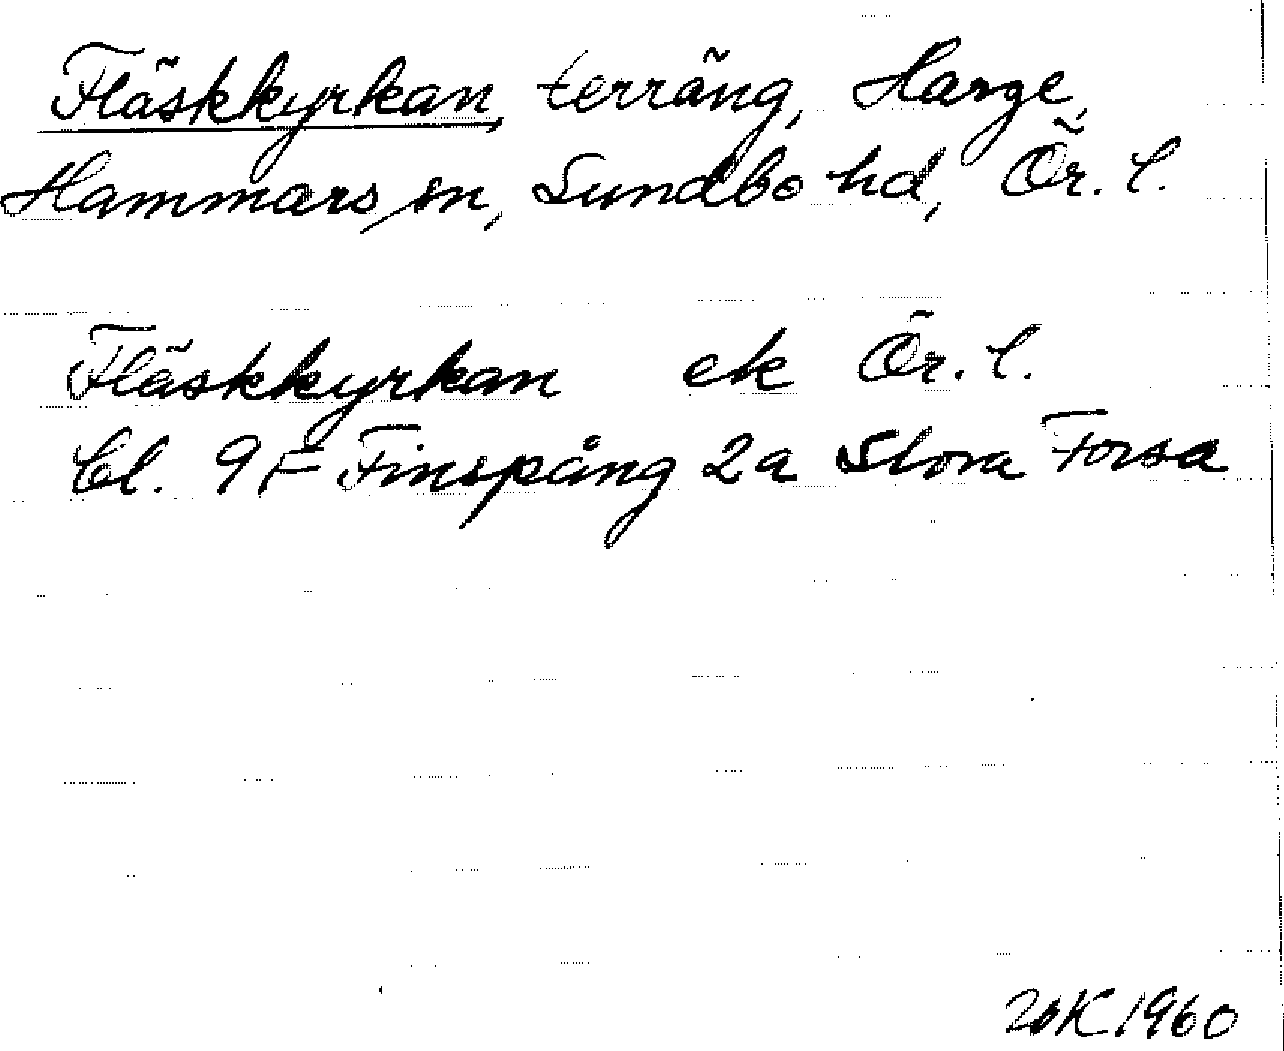 Fläskkyrkan, terräng, Harge,
Hammars sn, Sundbo hd, Ör. l.
Fläskkyrkan ek Ör. l.
bl. 9F Finspång 2a Stora Forsa
1960